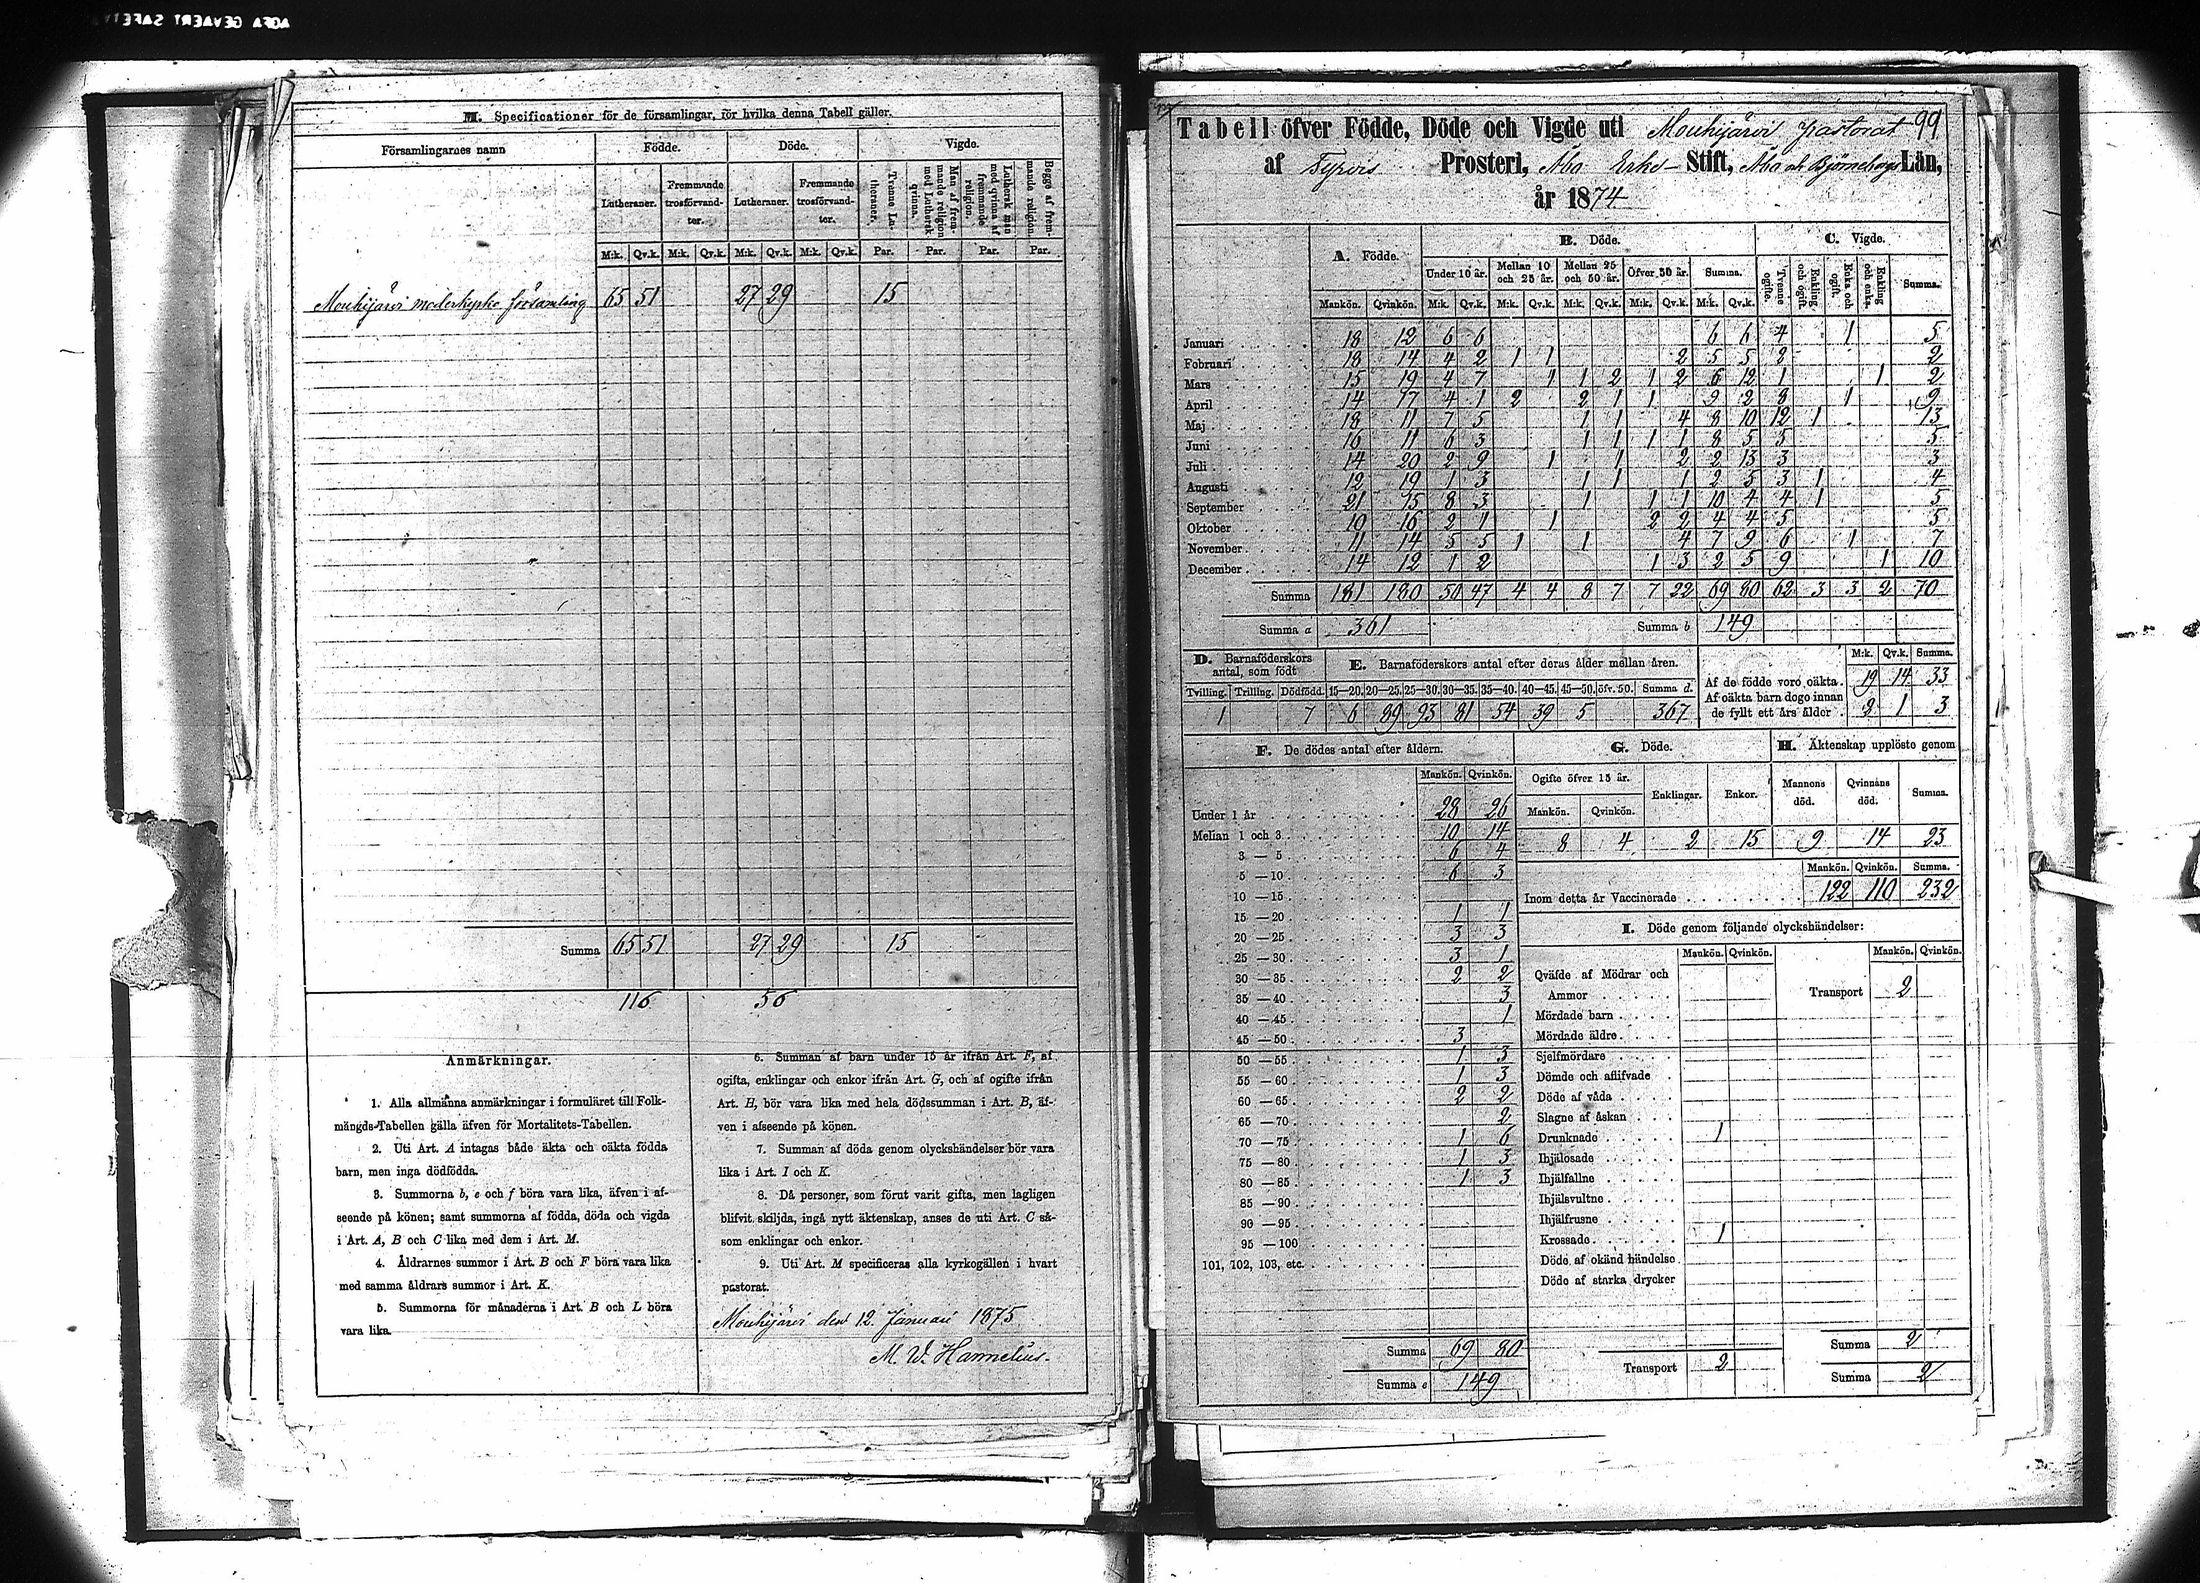 AGFA GEVAERT SAFETY
M. Specificationer för de församlingar, för hvilka denna Tabell gäller.
Församlingarnes namn | Födde. | Döde. | Vigde.
Lutheraner. | Fremmande trosförvandter. | Lutheraner. | Fremmande trosförvandter. | Trenne Lutheraner. | Man af fremmande religion med Luthersk qvinna. | Luthersk man med qvinna af fremmande religion. | Begge af fremmande religion.
M:k. Qv.k. M:k. Qv.k. M:k. Qv.k. M:k. Qv.k. Par. Par. Par. Par.
Mouhijärvi moderkyrko församling 65 51 27 29 15
Summa 65 51 27 29 15
116 56
Anmärkningar.
1. Alla allmänna anmärkningar i formuläret till Folk-
mängds-Tabellen gälla äfven för Mortalitets-Tabellen.
2. Uti Art. A intagas både äkta och oäkta födda
barn, men inga dödfödda.
3. Summorna b, e och f böra vara lika, äfven i af-
seende på könen; samt summorna af födda, döda och vigda
i Art. A, B och C lika med dem i Art. M.
4. Åldrarnes summor i Art. B och F böra vara lika
med samma åldrars summor i Art. K.
5. Summorna för månaderna i Art. B och L böra
vara lika.
6. Summan af barn under 15 år ifrån Art. F, af
ogifta, enklingar och enkor ifrån Art. G, och af ogifte ifrån
Art. H, bör vara lika med hela dödssumman i Art. B, äf-
ven i afseende på könen.
7. Summan af döda genom olyckshändelser bör vara
lika i Art. I och K.
8. Då personer, som förut varit gifta, men lagligen
blifvit skiljda, ingå nytt äktenskap, anses de uti Art. C så-
som enklingar och enkor.
9. Uti Art. M specificeras alla kyrkogällen i hvart
pastorat.
Mouhijärvi den 12 Januari 1875
M. W. Hannelius.
99
Tabell öfver Födde, Döde och Vigde uti Mouhijärvi pastorat
af Tyrvis Prosteri, Åbo Erke- Stift, Åbo och Björneborgs Län,
år 1874
A. Födde. | B. Döde. | C. Vigde.
Under 10 år. | Mellan 10 och 25 år. | Mellan 25 och 50 år. | Öfver 50 år. | Summa. | Tvenne ogifte. | Enkling och ogift. | Enka och ogift. | Enkling och enka. | Summa.
Mankön. Qvinkön. M:k. Qv.k. M:k. Qv.k. M:k. Qv.k. M:k. Qv.k. M:k. Qv.k.
Januari 18 12 6 6 6 6 4 1 5
Februari 18 14 4 2 1 1 2 5 5 2 2
Mars 15 19 4 7 1 1 2 1 2 6 12 1 1 2
April 14 17 4 1 2 2 1 1 9 2 8 1 9
Maj 18 11 7 5 1 1 4 8 10 12 1 13
Juni 16 11 6 3 1 1 1 1 8 5 5 5
Juli 14 20 2 9 1 1 2 2 13 3 3
Augusti 12 19 1 3 1 1 1 2 5 3 1 4
September 21 15 8 3 1 1 1 10 4 4 1 5
Oktober 10 16 2 1 1 2 2 4 4 5 5
November 11 14 5 5 1 1 4 7 9 6 1 7
December 14 12 1 2 1 3 2 5 9 1 10
Summa 181 180 50 47 4 4 8 7 7 22 69 80 62 3 3 2 70
Summa a 361 Summa b 149
D. Barnaföderskors antal, som födt
Tvilling. Trilling. Dödfödd.
1 7
E. Barnaföderskors antal efter deras ålder mellan åren.
15—20. 20—25. 25—30. 30—35. 35—40. 40—45. 45—50. öfv. 50. Summa d.
6 89 93 81 54 39 5 367
M:k. Qv.k. Summa.
Af de födde voro oäkta. 19 14 33
Af oäkta barn dogo innan
de fyllt ett års ålder 2 1 3
F. De dödes antal efter åldern.
Mankön. Qvinkön.
Under 1 år 28 26
Mellan 1 och 3 10 14
3 — 5 6 4
5 — 10 6 3
10 — 15
15 — 20 1 1
20 — 25 3 3
25 — 30 3 1
30 — 35 2 2
35 — 40 3
40 — 45 1
45 — 50 3
50 — 55 1 3
55 — 60 1 3
60 — 65 2 2
65 — 70 2
70 — 75 1 6
75 — 80 1 3
80 — 85 1 3
85 — 90
90 — 95
95 — 100
101, 102, 103, etc.
Summa 69 80
Summa e 149
G. Döde.
Ogifte öfver 15 år. | Enklingar. | Enkor.
Mankön. Qvinkön.
8 4 2 15
H. Äktenskap upplöste genom
Mannens död. | Qvinnans död. | Summa.
9 14 23
Mankön. Qvinkön. Summa.
Inom detta år Vaccinerade 122 110 232
I. Döde genom följande olyckshändelser:
Mankön. Qvinkön. Mankön. Qvinkön.
Qväfde af Mödrar och
Ammor
Transport 2
Mördade barn
Mördade äldre
Sjelfmördare
Dömde och aflifvade
Döde af våda
Slagne af åskan
Drunknade 1
Ihjälosade
Ihjälfallne
Ihjälsvultne
Ihjälfrusne
Krossade 1
Döde af okänd händelse
Döde af starka drycker
Transport 2
Summa 2
Summa 2